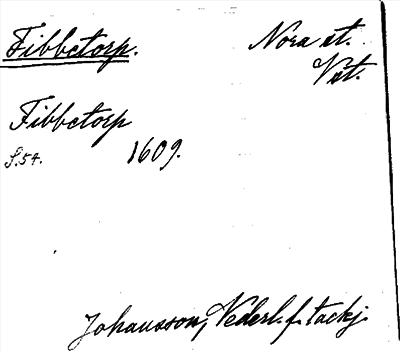 Fibbetorp. Nora st.
Vst.
Fibbetorp
S.54. 1609.
Johansson, Nederl. f. tackj.